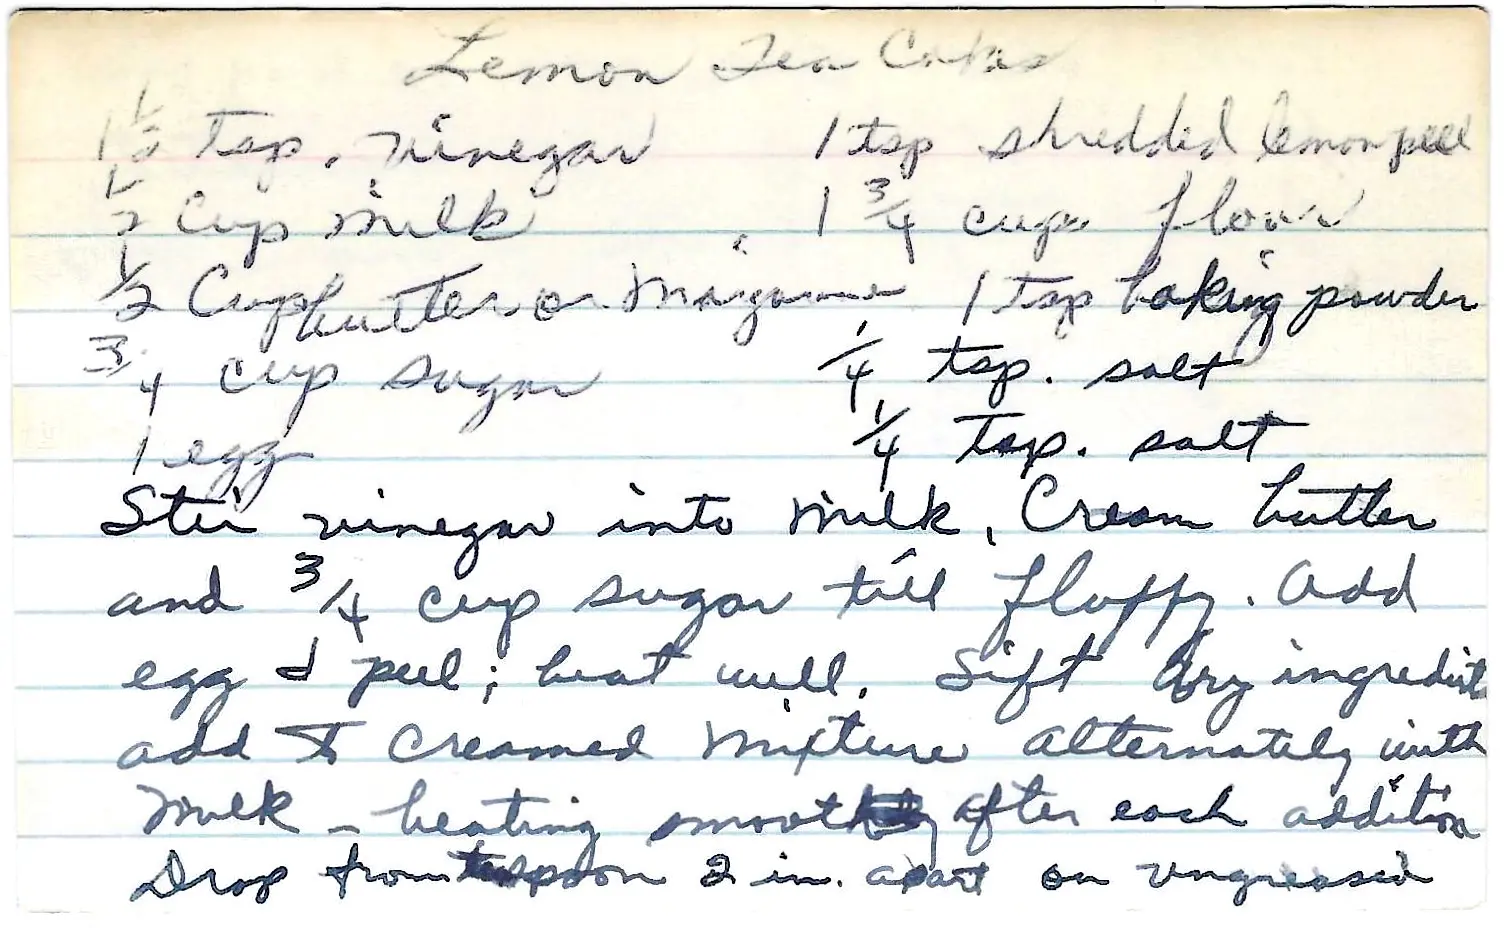 Lemon Tea Cakes
1 1/2 tsp. vinegar 1 tsp shredded lemon peel
1/2 Cup milk 1 3/4 cups flour
1/2 Cup butter or 1 tsp baking powder
3/4 cup sugar 1/4 tsp. salt
1 egg 1/4 tsp. salt
Stir vinegar into milk. Cream butter
and 3/4 cup sugar till fluffy. Add
egg & peel; beat well. Sift dry ingredients
add to creamed mixture alternately with
milk - beating smooth after each addition
Drop from teaspoon 2 in. apart on ungreased